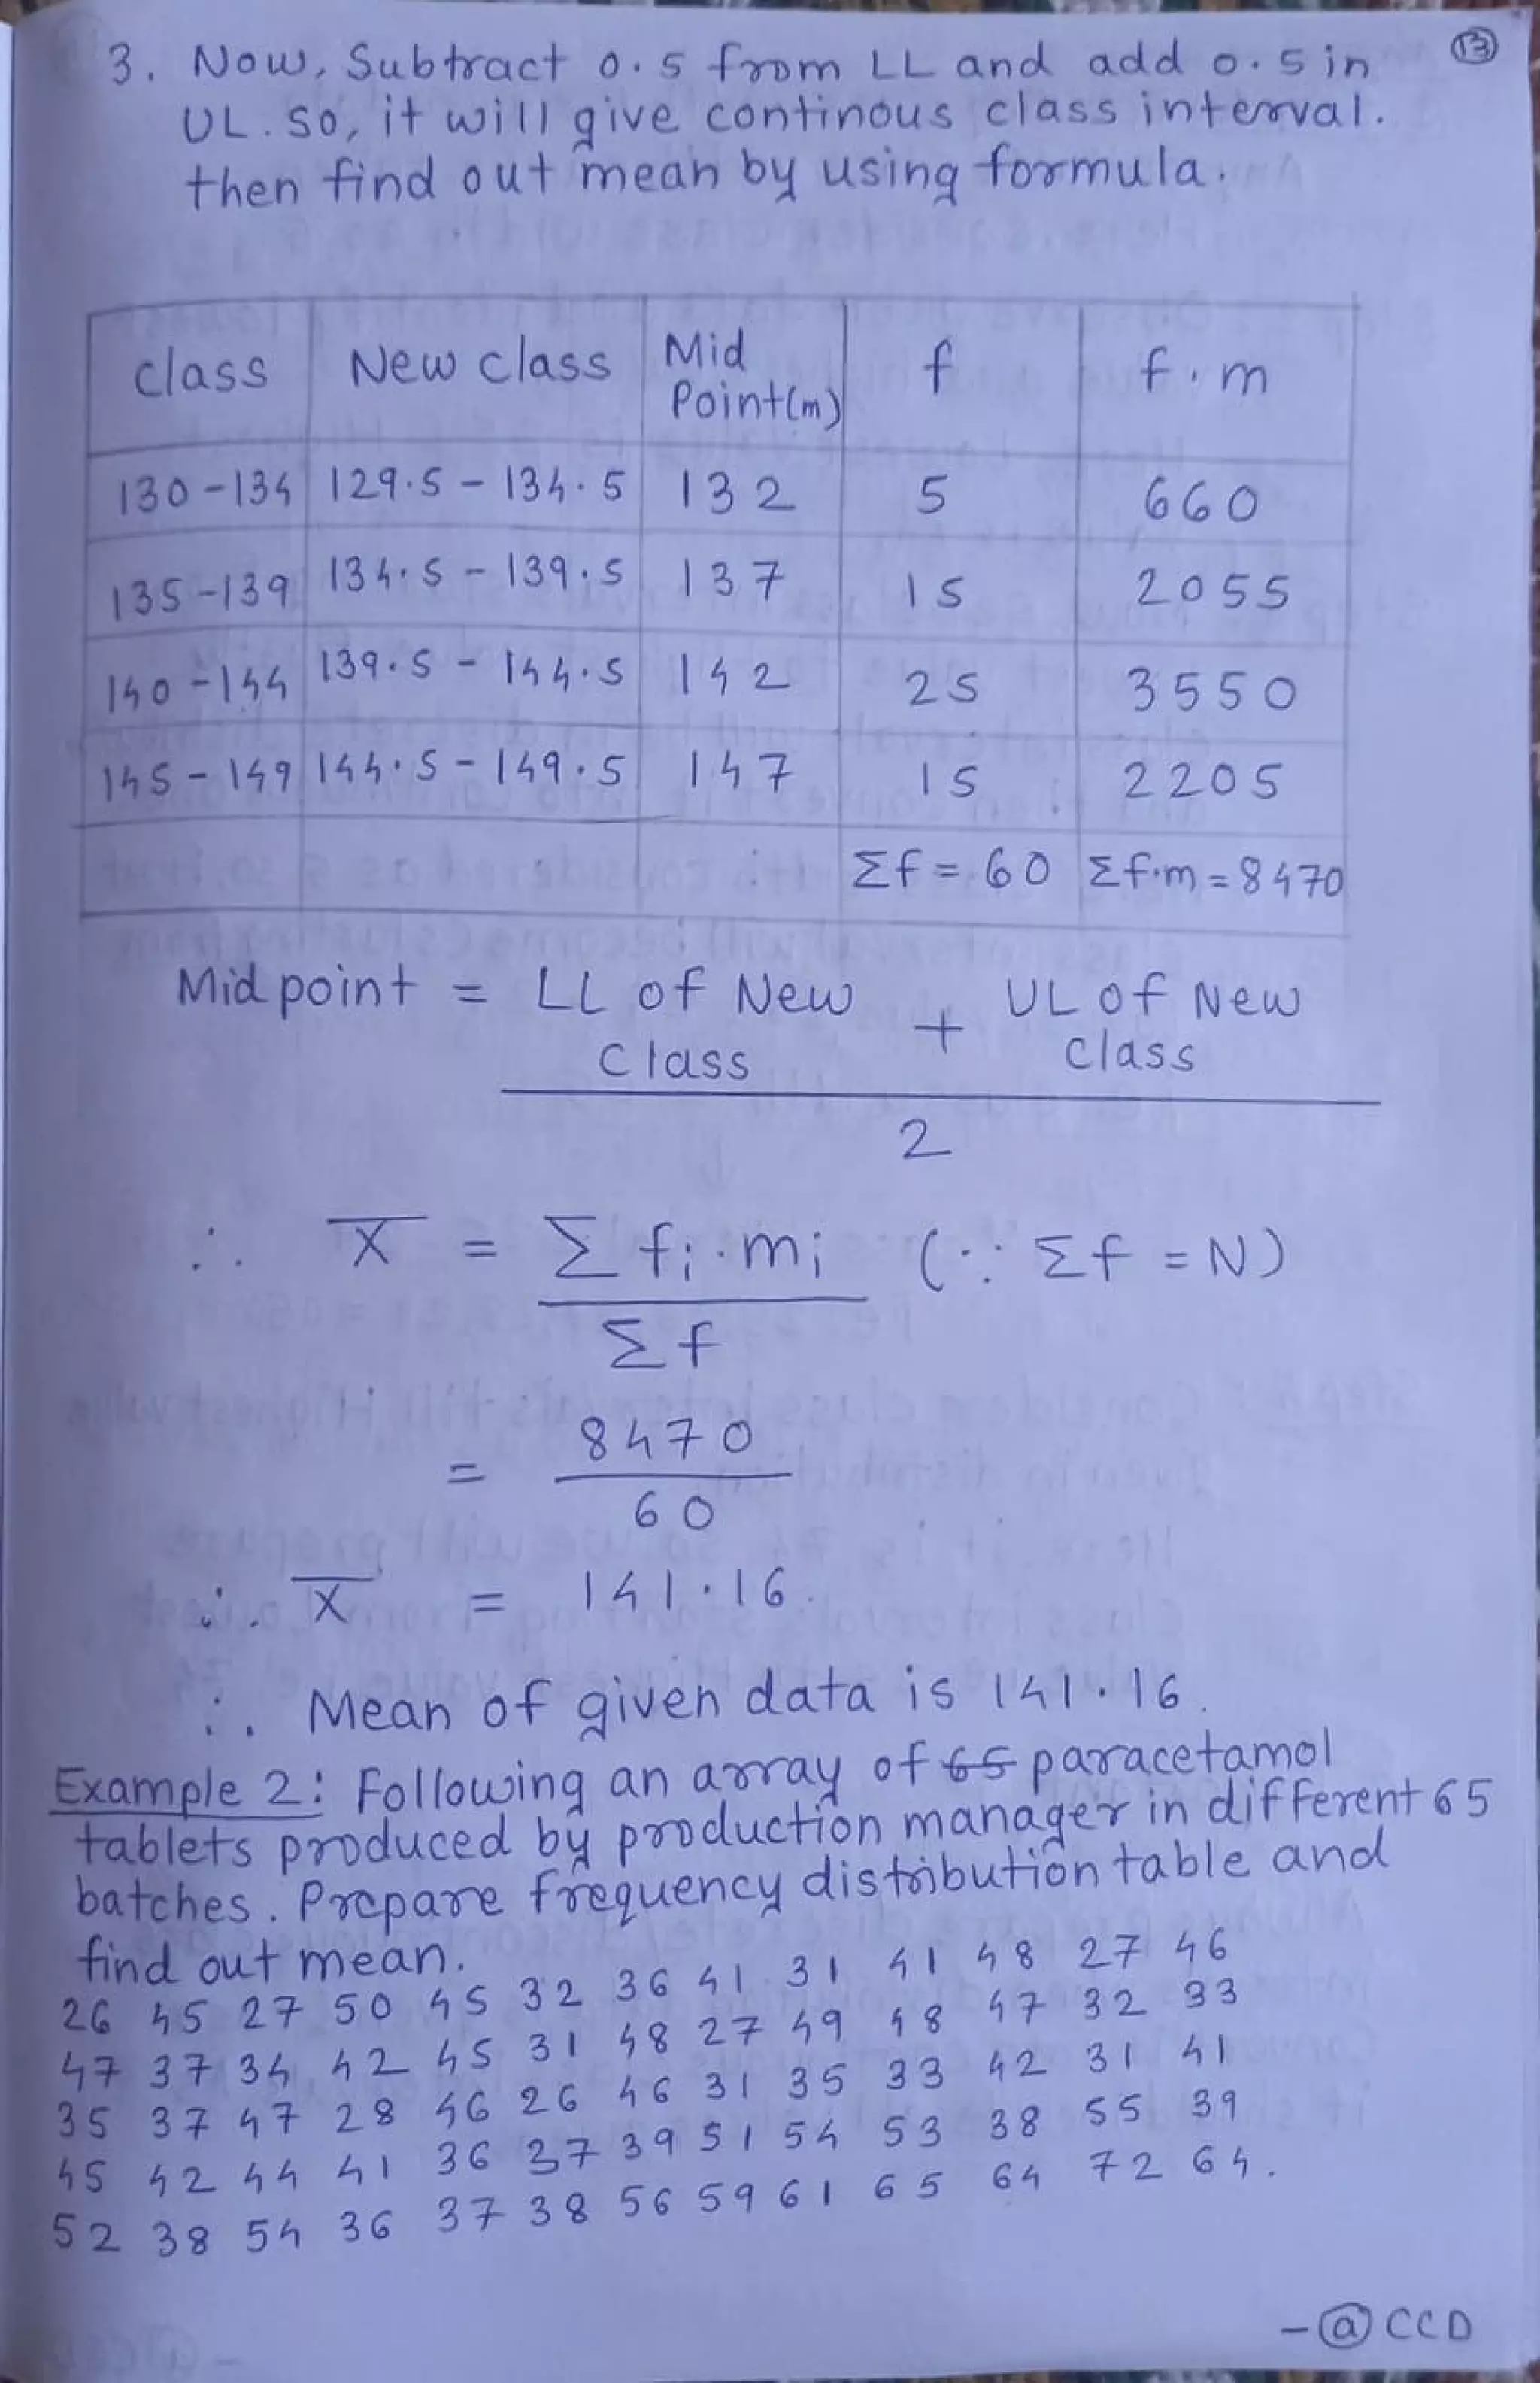 13
3. Now, Subtract 0.5 from LL and add 0.5 in
UL. so, it will give continous class interval.
then find out mean by using formula.
class New class Mid Point(m) f f.m
130-134 129.5 - 134.5 132 5 660
135-139 134.5 - 139.5 137 15 2055
140-144 139.5 - 144.5 142 25 3550
145-149 144.5 - 149.5 147 15 2205
Σf = 60 Σf.m = 8470
Mid point = LL of New Class + UL of New Class
2
∴ X̅ = Σ fi.mi (∵ Σf = N)
Σf
= 8470
60
∴ X̅ = 141.16.
∴ Mean of given data is 141.16.
Example 2: Following an array of 65 paracetamol
tablets produced by production manager in different 65
batches. Prepare frequency distribution table and
find out mean.
26 45 27 50 45 32 36 41 31 41 48 27 46
47 37 34 42 45 31 48 27 49 48 47 32 33
35 37 47 28 46 26 46 31 35 33 42 31 41
45 42 44 41 36 37 39 51 54 53 38 55 39
52 38 54 36 37 38 56 59 61 65 64 72 64.
-@CCD